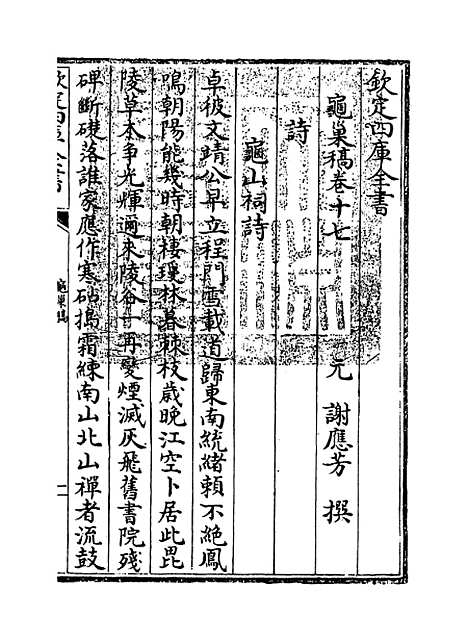 欽定四庫全書
龜巢稿卷十七
元 謝應芳 撰
詩
龜山祠詩
卓彼文靖公早立程門雪載道歸東南統緒賴不絶鳳
鳴朝陽能幾時朝棲璚林暮棘枝歲晚江空卜居此毘
陵草木爭光輝邇來陵谷一再變煙滅灰飛舊書院殘
碑斷礎落誰家應作寒砧搗霜練南山北山禪者流鼓
欽定四庫全書
龜巢稿
一